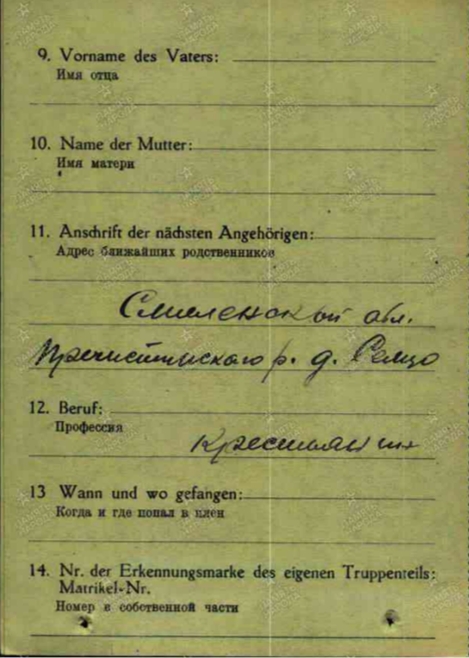 9. Vorname des Vaters:
Имя отца
10. Name der Mutter:
Имя матери
11. Anschrift der nächsten Angehörigen:
Адрес ближайших родственников
Смоленской обл.
Пречистинского р. д. Селцо
12. Beruf:
Профессия
крестьянин
13 Wann und wo gefangen:
Когда и где попал в плен
14. Nr. der Erkennungsmarke des eigenen Truppenteils:
Matrikel-Nr.
Номер в собственной части